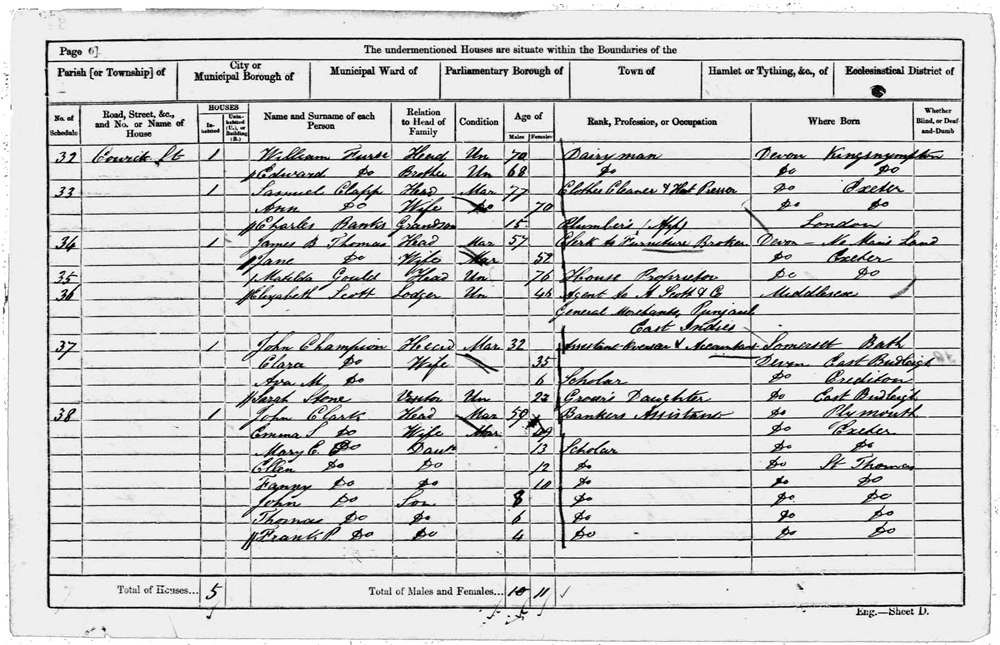 Page 6]
The undermentioned Houses are situate within the Boundaries of the
Parish [or Township] of City or Municipal Borough of Municipal Ward of Parliamentary Borough of Town of Hamlet or Tything, &c., of Ecclesiastical District of
No. of Schedule Road, Street, &c., and No. or Name of House HOUSES Inhabited Uninhabited (U.), or Building (B.) Name and Surname of each Person Relation to Head of Family Condition Age of Males Females Rank, Profession, or Occupation Where Born Whether Blind, or Deaf-and-Dumb
32 Cowick St 1 William Furse Head Un 70 Dairyman Devon Kingsnympton
Edward Do Brother Un 68 Do Do Do
33 1 Samuel Clapp Head Mar 77 Clothes Cleaner & Hat Presser Do Exeter
Ann Do Wife Do 70 Do Do
Charles Banks Grandson 15 Plumber's (App) London
34 1 James B Thomas Head Mar 57 Clerk to Furniture Broker Devon - No Man's Land
Jane Do Wife Mar 52 Do Exeter
35 Matilda Gould Head Un 76 House Proprietor Do Do
36 Elizabeth Scott Lodger Un 46 Agent to A Scott & Co Middlesex
General Merchants, Punjaub
East Indies
37 1 John Champion Head Mar 32 Assistant & Accountant Somerset Bath
Clara Do Wife 35 Devon East Budleigh
Ava M Do 6 Scholar Do Crediton
Sarah Stone Visitor Un 22 Grocer's Daughter Do East Budleigh
38 1 John Clark Head Mar 50 Bankers Assistant Do Plymouth
Emma S Do Wife Mar 49 Do Exeter
Mary C E Do Daur 13 Scholar Do Do
Ellen Do Do 12 Do Do St Thomas
Fanny Do Do 10 Do Do Do
John Do Son 8 Do Do Do
Thomas Do Do 6 Do Do Do
Frank P Do Do 4 Do Do Do
Total of Houses... 5 Total of Males and Females... 10 11
Eng.—Sheet D.